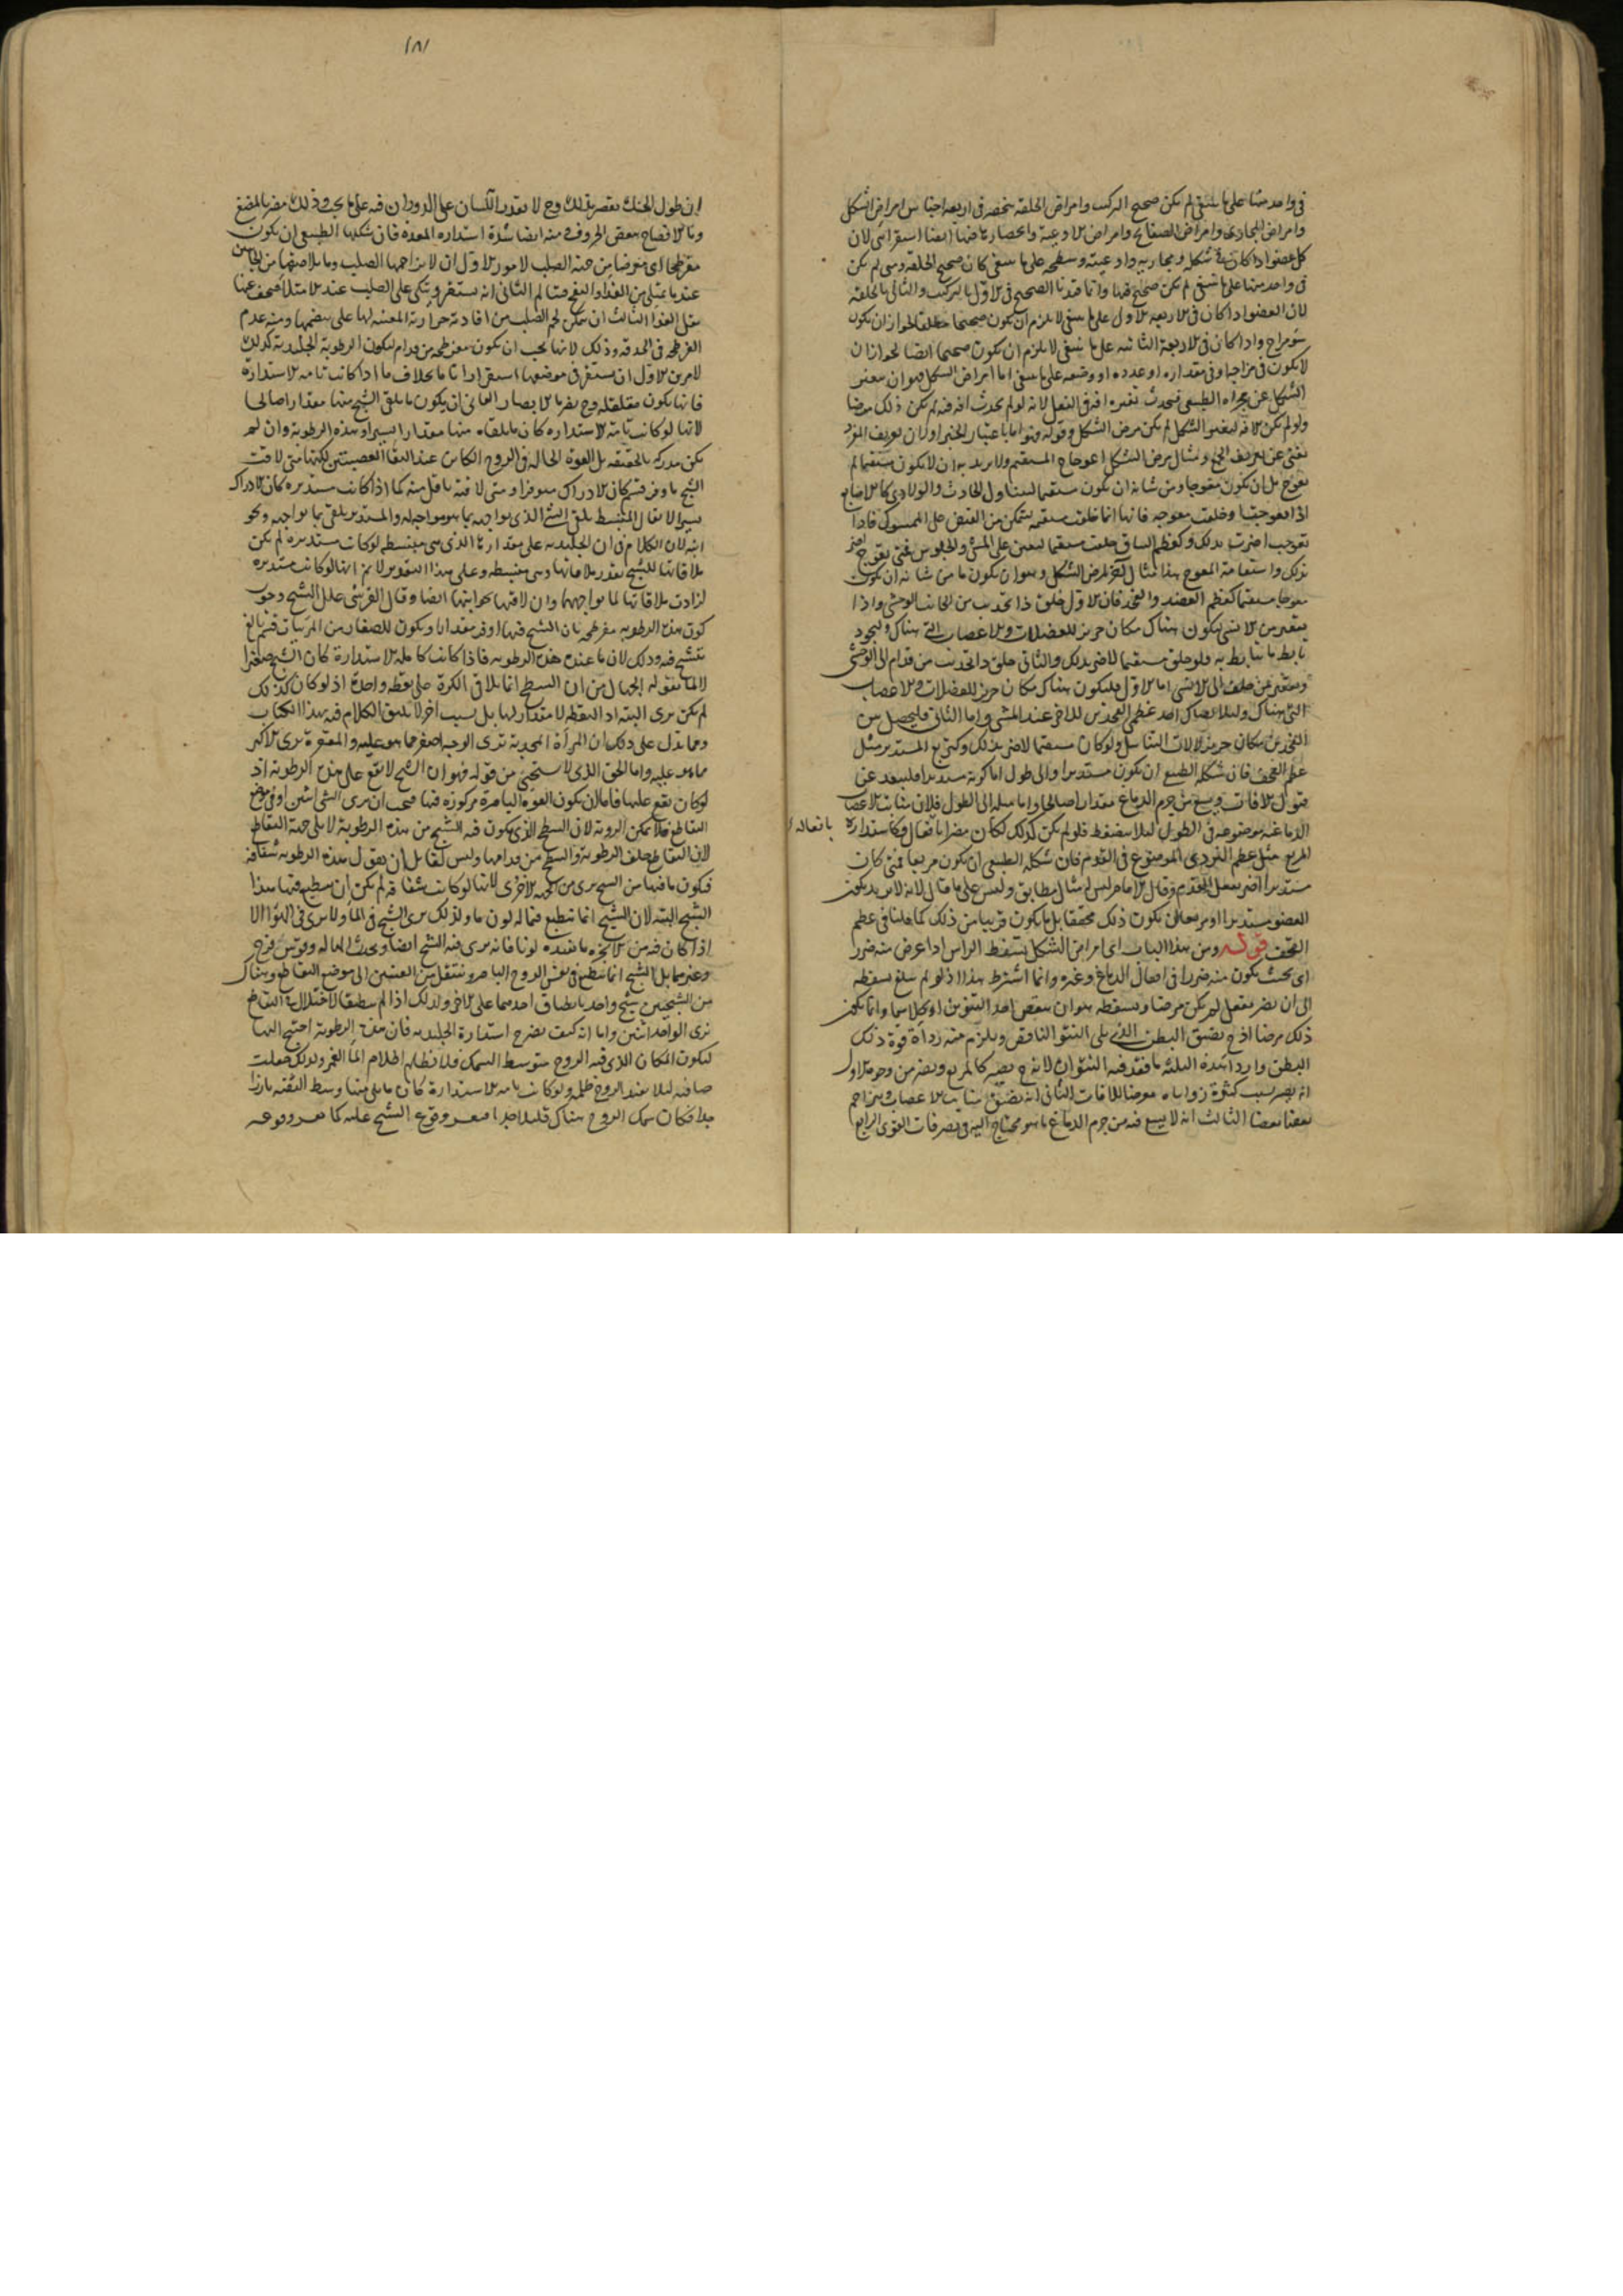 في واحد منها على ما ينبغي لم يكن صحيح التركيب وامراض الخلقة تنحصر في اربعة اجناس امراض الشكل
وامراض المجاري وامراض الصفائح وامراض الاوعية وانحصارها فيها ايضا استقرائي لان
كل عضو اذا كان شكله ومجاريه واوعيته وسطحه على ما ينبغي كان صحيح الخلقة ومتى لم يكن
في واحد منها على ما ينبغي لم يكن صحيح فيها وانما قيدنا الصحيح في الاول بالتركيب والثاني بالخلقة
لان العضو اذا كان في الاربعة الاول على ما ينبغي لا يلزم ان يكون صحيحا مطلقا لجواز ان يكون
سوء مزاج واذا كان في الاربعة الثانية على ما ينبغي لا يلزم ان يكون صحيحا ايضا لجواز ان
لا يكون في مزاجه او في مقداره او عدده او وضعه على ما ينبغي اما امراض الشكل فهو ان يتغير
الشكل عن مجراه الطبيعي فيحدث تغيره افة في الفعل لانه لو لم يحدث افة فيه لم يكن ذلك مرضا
ولو لم يكن الافة لتغير الشكل لم يكن مرض الشكل وقوله وهو اما باعتبار الخبر او لان تعريف المفرد
يغني عن تعريف الجمع ومثال مرض الشكل اعوجاج المستقيم ولا يريد به ان لا يكون مستقيما لم
يعوج بل ان يكون معوجا ومن شانه ان يكون مستقيما ليتناول الحادث والولادي كالاصابع
اذا اعوجت او خلقت معوجة فانها انما خلقت مستقيمة ليتمكن من القبض على الممسوك فاذا
تعوجت اضرت بذلك وكعظم الساق خلقت مستقيما ليعين على المشي والجلوس فمتى تعوج اضر
بذلك واستقامة المعوج هذا مثال اخر لمرض الشكل وهو ان يكون ما من شانه ان يكون
معوجا مستقيما كعظم العضد والفخذ فان الاول خلق ذا تحديب من الجانب الوحشي واذا
تقعير من الانسي ليكون هناك مكان حريز للعضلات والاعصاب التي هناك وليجود
تابط ما يتابط به فلو خلق مستقيما لاضر بذلك والثاني خلق ذا تحديب من قدام الى الوحشي
وتقعير من خلف الى الانسي اما الاول فليكون هناك مكان حريز للعضلات والاعصاب
التي هناك ولئلا يصاك احد عظمي الفخذين للاخر عند المشي واما الثاني فليحصل بين
الفخذين مكان حريز لالات التناسل ولو كان مستقيما لاضر بذلك وكتربيع المستدير مثل
عظم القحف فان شكله الطبيعي ان يكون مستديرا والى طول اما كونه مستديرا فليبعد عن
قبول الافات ويسع من جرم الدماغ مقدارا صالحا واما ميله الى الطول فلان منابت الاعصاب
الدماغية موضوعة في الطول لئلا ينضغط فلو لم يكن كذلك لكان مضرا بافعاله وكاستدارة
المربع مثل عظم النردي الموضوع في القدم فان شكله الطبيعي ان يكون مربعا فمتى كان
مستديرا اضر بفعل القدم وقال الامام ليس له مثال مطابق وليس على ما قال لانه لا يريد بكون
العضو مستديرا او مربعا ان يكون ذلك محققا بل ما يكون قريبا من ذلك كما قلنا في عظم
القحف قوله ومن هذا الباب اي امراض الشكل تسفط الراس اذا عرض منه ضرر
اي بحيث يكون منه ضرر في افعال الدماغ وغيره وانما اشترط هذا اذ لو لم يبلغ تسفطه
الى ان يضر بفعل لم يكن مرضا وتسفطه هو ان ينقص احد النتوين او كلاهما وانما يكون
ذلك مرضا اذ ح يضيق البطن الذي يلي النتو الناقص ويلزم منه رداءة قوة ذلك
البطن واردا هذه الثلاثة ما فقد فيه النتوان لانه ح يصير كالمربع ويضر من وجوه الاول
انه يصير بسبب كثرة زواياه معرضا للافات الثاني انه تضيق منابت الاعصاب ويزاحم
بعضها بعضا الثالث انه لا يسع فيه من جرم الدماغ ما هو محتاج اليه في تصرفات القوى الرابع
بافعاله
١٨١
ان طول الحنك يقصر بذلك وح لا يقدر اللسان على الدوران فيه على ما يجب وذلك مضر بالمضغ
وبالافصاح ببعض الحروف ومنه ايضا شدة استدارة المعدة فان شكلها الطبيعي ان يكون
مفرطحا اي عريضا من جهة الصلب لامور الاول ان لا يزاحمها الصلب وما يلاصقها من الجانبين
عند ما يمتلي من الغذاء والنفخ فيتالم الثاني انه يستقر ويتكي على الصلب عند الامتلاء فيخف عنها
ثقل الغذا الثالث ان يتمكن لحم الصلب من افادته حرارته المعينة لها على هضمها ومنه عدم
الفرطحة في الحدقة وذلك لانها يجب ان يكون مفرطحة من قدام ليكون الرطوبة الجليدية كذلك
لامرين الاول ان يستقر في موضعها استقرارا تاما بخلاف ما اذا كانت تامة الاستدارة
فانها يكون متقلقلة وح يضر بالابصار الثاني ان يكون ما يلقى الشبح منها مقدارا صالحا
لانها لو كانت تامة الاستدارة كان ما يلقاه منها مقدارا يسيرا وهذه الرطوبة وان لم
يكن مدركة بالحقيقة بل القوة الحالة في الروح الكاين عند التقاء العصبتين لكنها متى لاقت
الشبح باوفر قسم كان الادراك موفرا ومتى لاقته باقل منه كما اذا كانت مستديرة كان الادراك
يسيرا لا يقال المنبسط يلقى الشي الذي يواجهه بما هو مواجه له والمستدير يلقى بما يواجهه ونحو
انه لان الكلام في ان الجليدية على مقدارها الذي هي منبسطة لو كانت مستديرة لم يكن
ملاقاتها للشبح بقدر ملاقاتها وهي منبسطة وعلى هذا التقدير لا يم انها لو كانت مستديرة
لزادت ملاقاتها لما يواجهها وان لاقتها بجوانبها ايضا وقال القرشي علل الشيخ وجوب
كون هذه الرطوبة مفرطحة بان الشبح فيها اوفر مقدارا ويكون للصغار من المرئيات قسم بالغ
يتشبح فيه وذلك لان ما عنده هذه الرطوبة فاذا كانت كاملة الاستدارة كان الشبح صغيرا
لا لما يقوله الجهال من ان السطح انما يلاقي الكرة على نقطة واحدة اذ لو كان كذلك
لم يكن يرى البتة اذ النقطة لا مقدار لها بل بسبب اخر لا يليق الكلام فيه بهذا الكتاب
ومما يدل على ذلك ان المرآة المحدبة ترى الوجه اصغر مما هو عليه والمقعرة يرى الاكبر
مما هو عليه واما الحق الذي لا يستحيى من قوله فهو ان الشبح لا يقع على هذه الرطوبة اذ
لو كان يقع عليها فاما ان يكون القوة الباصرة مركوزة فيها فيجب ان يرى الشي اثنين او في موضع
التقاطع فلا يمكن الروية لان السطح الذي يكون فيه الشبح من هذه الرطوبة لا يلي جهة التقاطع
لان التقاطع خلف الرطوبة والسطح من قدامها وليس لقائل ان يقول هذه الرطوبة شفافة
فيكون ما فيها من الشبح يرى من الجهة الاخرى لانها لو كانت شفافة لم يكن ان ينطبع فيها هذا
الشبح البتة لان الشبح انما ينطبع فيما له لون ما ولذلك يرى الشبح في الماء ولا يرى في الهواء الا
اذا كان فيه من الابخرة ما يفيده لونا فانه يرى فيه الشبح ايضا ويحدث الهالة وقوس قزح
وغيرهما بل الشبح انما ينطبع في نفس الروح الباصر وينتقل من العينين الى موضع التقاطع وهناك
من الشبحين ح شبح واحد بانطباق احدهما على الاخر ولذلك اذا لم ينطبقا لاختلال في التقاطع
نرى الواحد اثنين واما انه كيف يضر ح استدارة الجليدية فان هذه الرطوبة احتيج اليها
ليكون المكان الذي فيه الروح متوسط السمك فلا يظلم اظلام الماء الغمر ولذلك جعلت
صافية لئلا يفيد الروح ظلمة ولو كانت تامة الاستدارة كان ما يلي منها وسط الثقبة بارزا
جدا فكان سمك الروح هناك قليلا جدا فيعسر وقوع الشبح عليه كما يعسر وقوعه